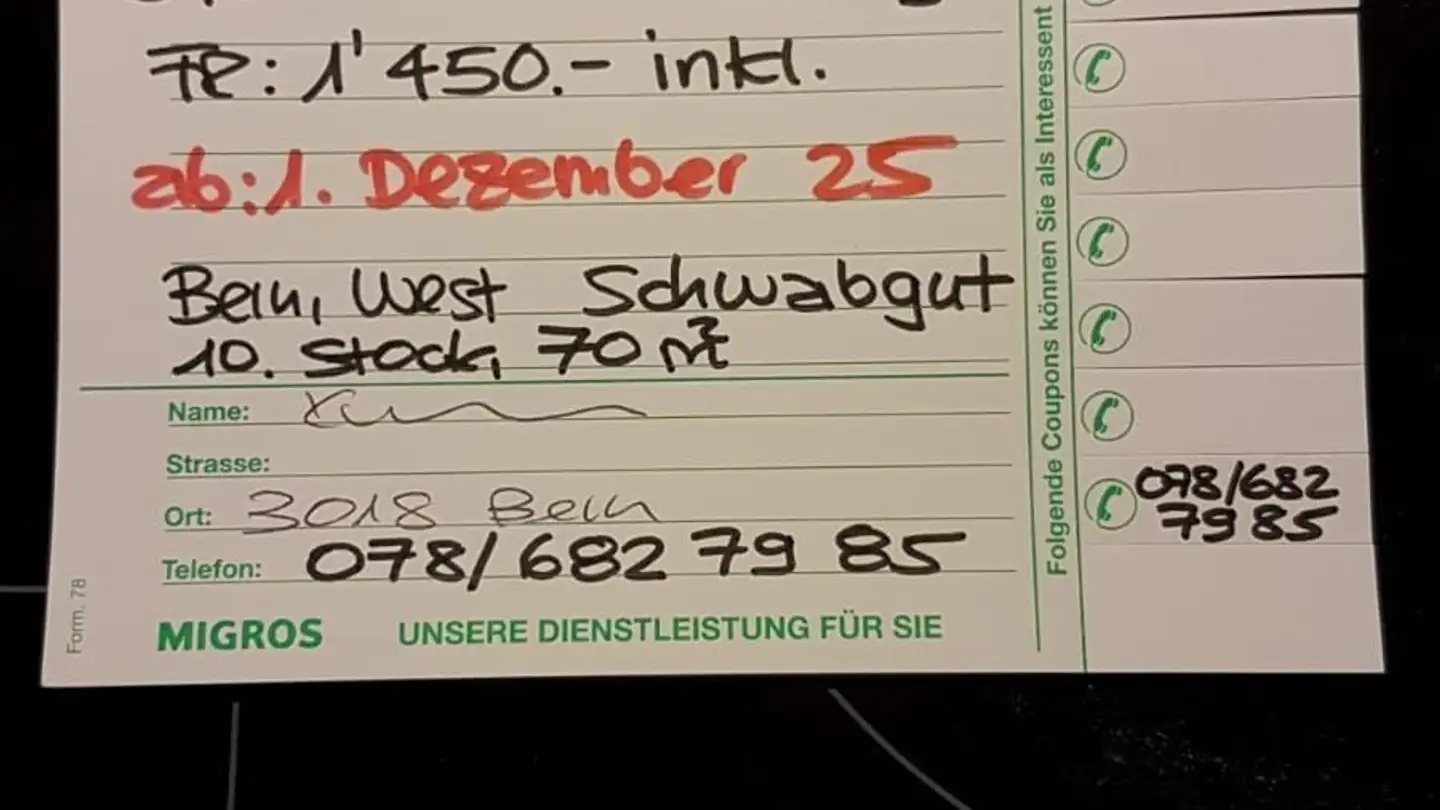 FR: 1'450.- inkl.
ab: 1. Dezember 25
Bern, West Schwabgut
10. Stock, 70 m²
Name:
Strasse:
Ort: 3018 Bern
Telefon: 078/682 79 85
MIGROS UNSERE DIENSTLEISTUNG FÜR SIE
Form. 78
Folgende Coupons können Sie als Interessent
078/682
79 85